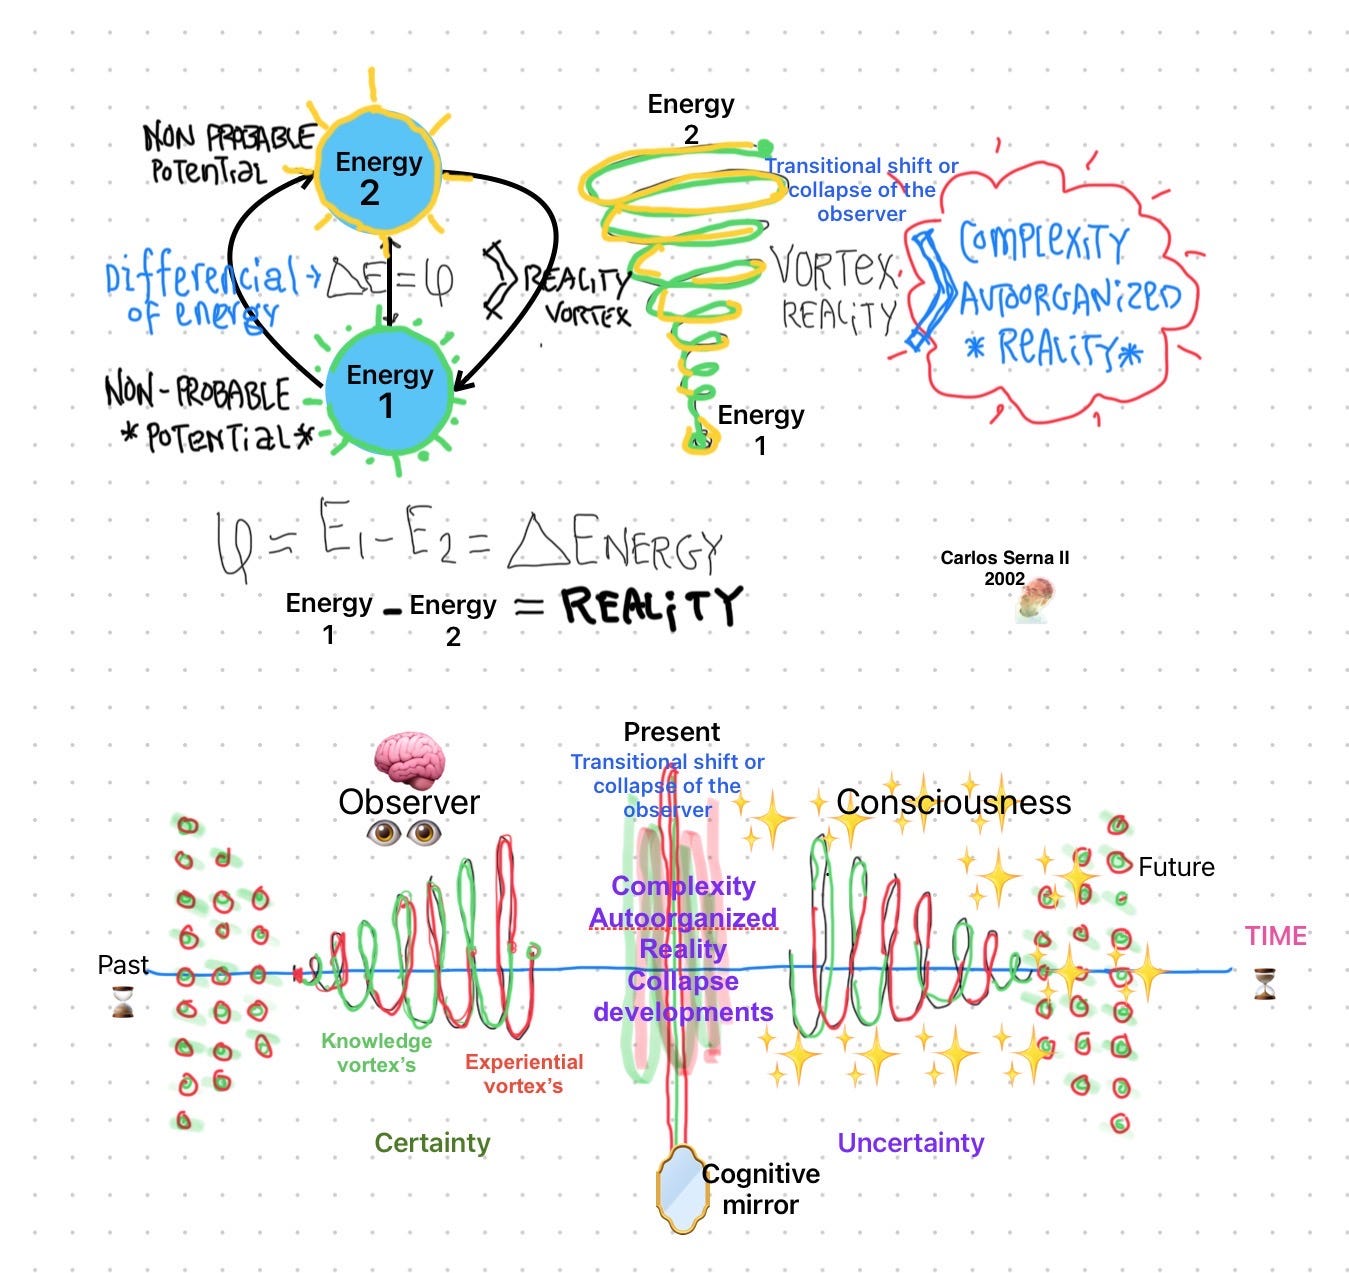 Energy
2
NON PROBABLE
POTENTIAL
Energy
2
Transitional shift or
collapse of the
observer
Differencial → ΔE = φ
of energy
REALITY
VORTEX
VORTEX
REALITY
COMPLEXITY
AUTOORGANIZED
* REALITY *
NON-PROBABLE
* POTENTIAL *
Energy
1
Energy
1
φ = E1 - E2 = ΔENERGY
Energy
1
-
Energy
2
= REALITY
Carlos Serna II
2002
Present
Transitional shift or
collapse of the
observer
Observer
Consciousness
Complexity
Autoorganized
Reality
Collapse
developments
Future
Past
TIME
Knowledge
vortex's
Experiential
vortex's
Certainty
Uncertainty
Cognitive
mirror